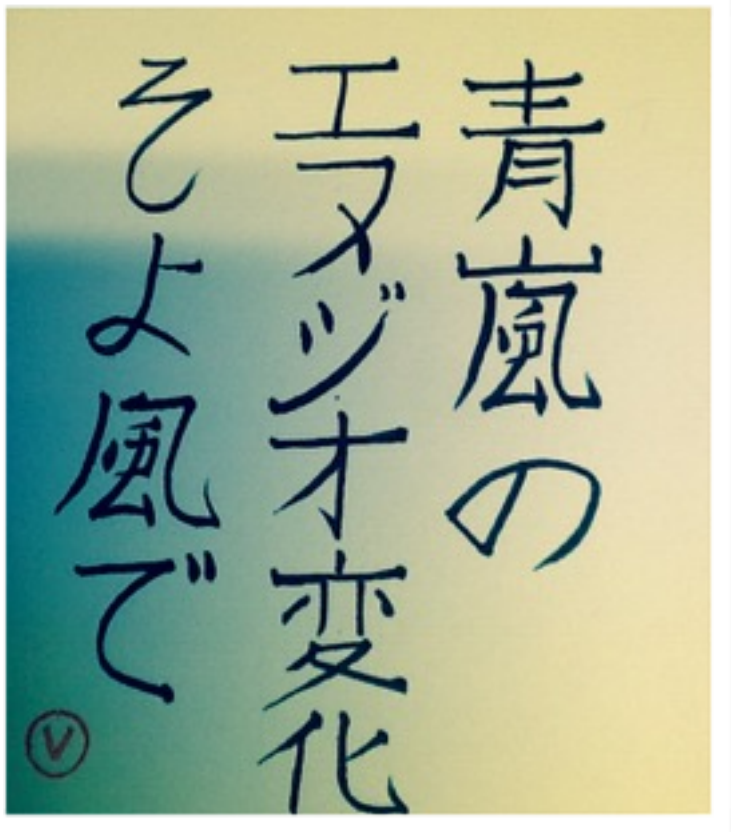 青嵐の
エヌジオ変化
そよ風で
V